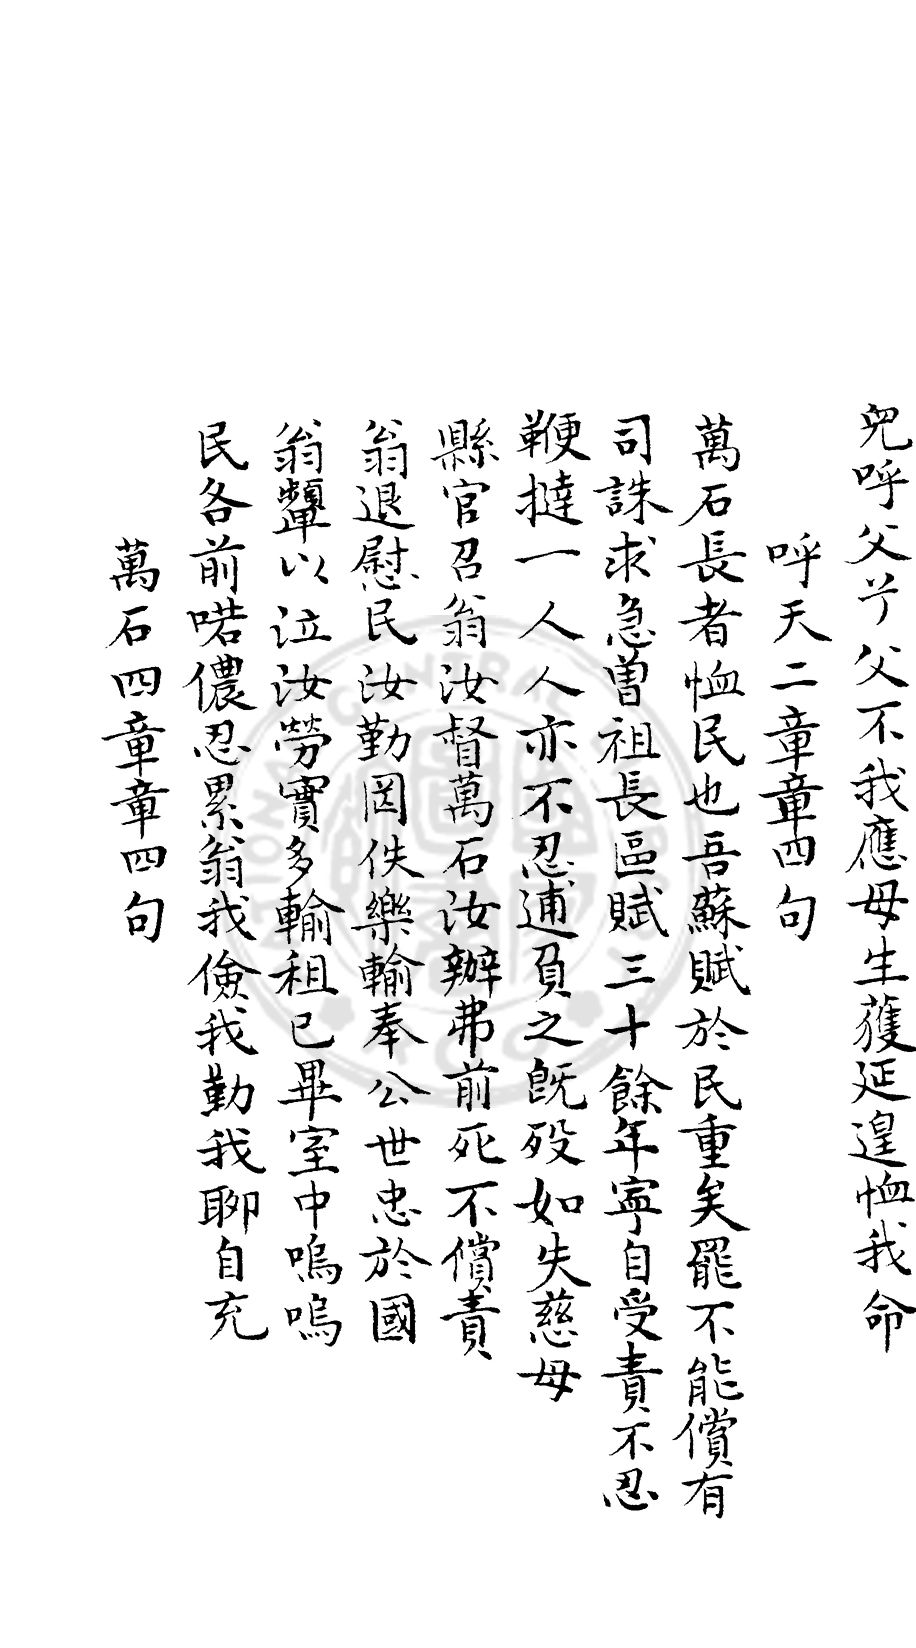 兒呼父兮父不我應母生蒦延遑恤我命
呼天二章章四句
萬石長者恤民也吾蘇賦於民重矣罷不能償有
司誅求急曽祖長區賦三十餘年寧自受責不忍
鞭撻一人人亦不忍逋負之既歿如失慈母
縣官召翁汝督萬石汝辦弗前死不償責
翁退慰民汝勤罔佚樂輸奉公世忠於國
翁顰以泣汝勞實多輸租已畢室中嗚嗚
民各前喏儂忍累翁我儉我勤我聊自充
萬石四章章四句